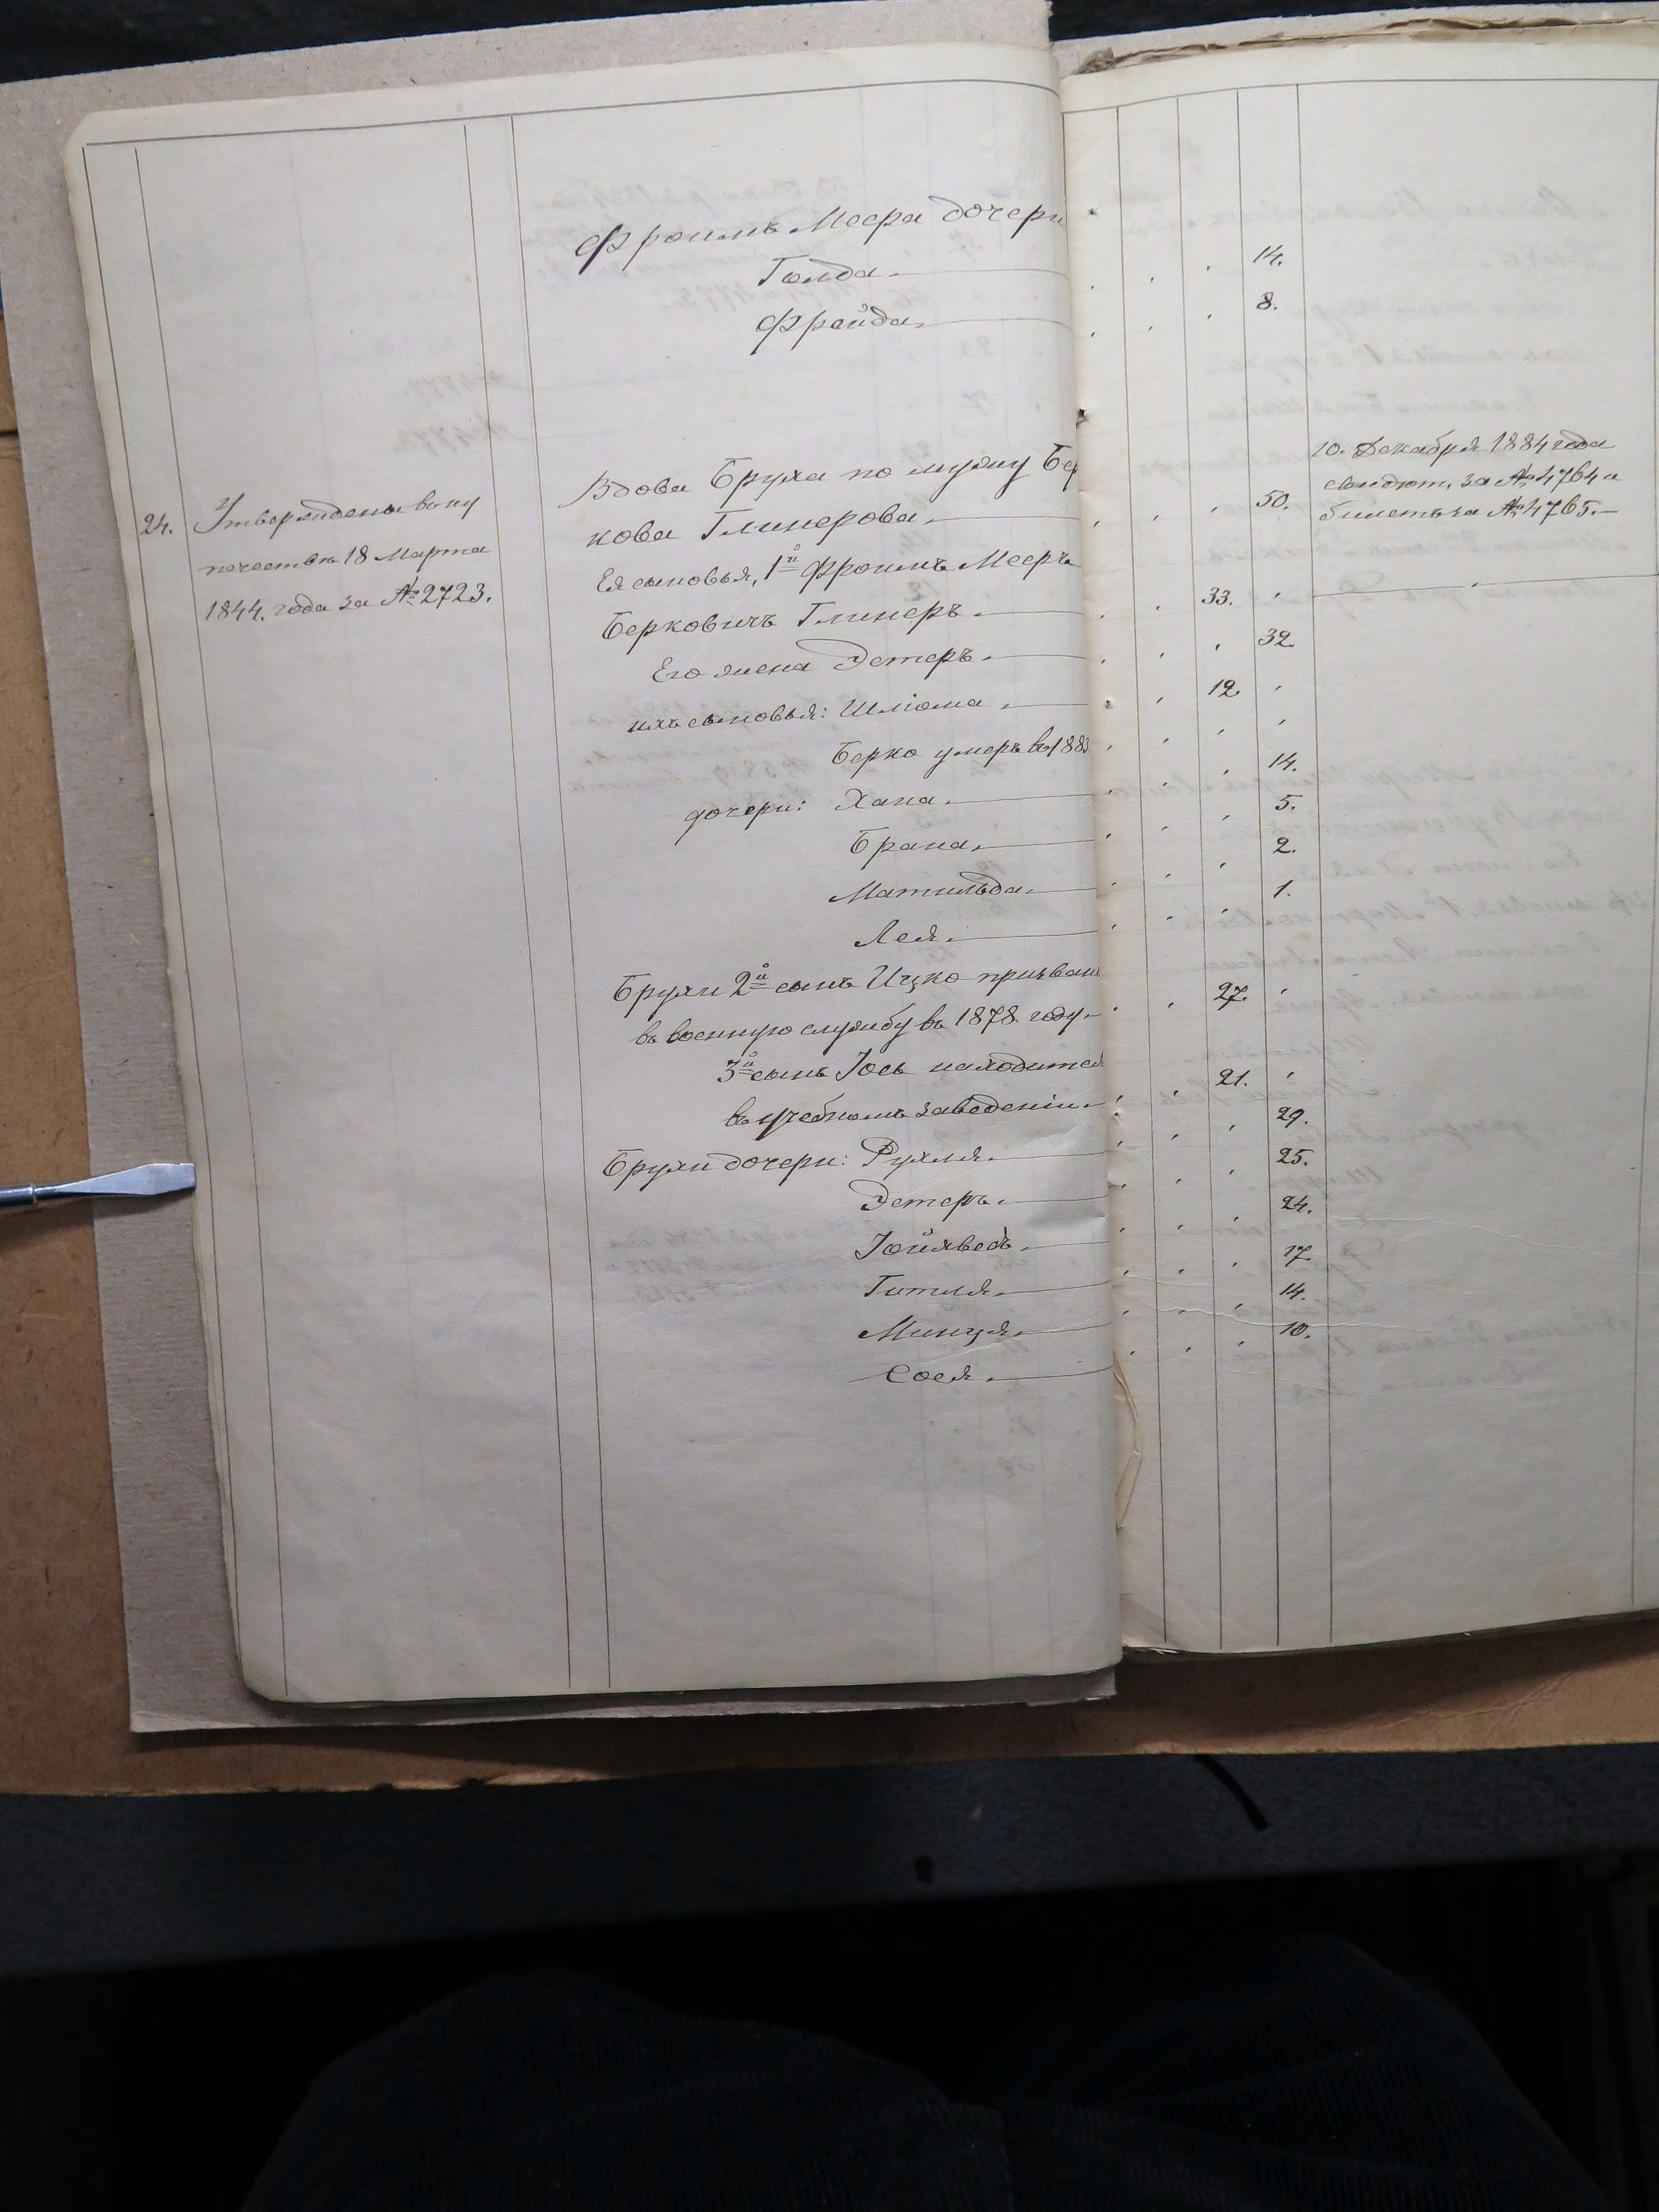 Фроимъ Меера дочери
Голда. 14.
Фрейда. 8.
24. Утверждены въ ку
печествѣ 18 Марта
1844. года за № 2723.
Вдова Бруха по мужу Бер
кова Глинерова. 50.
10. Декабря 1884 года
свидѣт. за № 4764 и
билетъ за № 4765.
Ея сыновья, 1й Фроимъ Мееръ
Берковичъ Глинеръ. 33.
Его жена Эстеръ. 32.
ихъ сыновья: Шліома 12.
Берко умеръ въ 188
дочери: Хана. 14.
Брана. 5.
Матильда. 2.
Лея. 1.
Брухи 2й сынъ Ицко призван
въ военную службу въ 1878 году. 27.
3й сынъ Іось находится
въ учебномъ заведеніи. 21.
Брухи дочери: Рухля. 29.
Эстеръ. 25.
Іойхведъ. 24.
Гитля. 17.
Минця. 14.
Сося. 10.